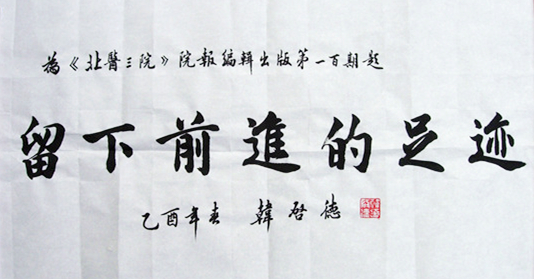 為《北醫三院》院報編輯出版第一百期題
留下前進的足迹
乙酉年春 韓啓德